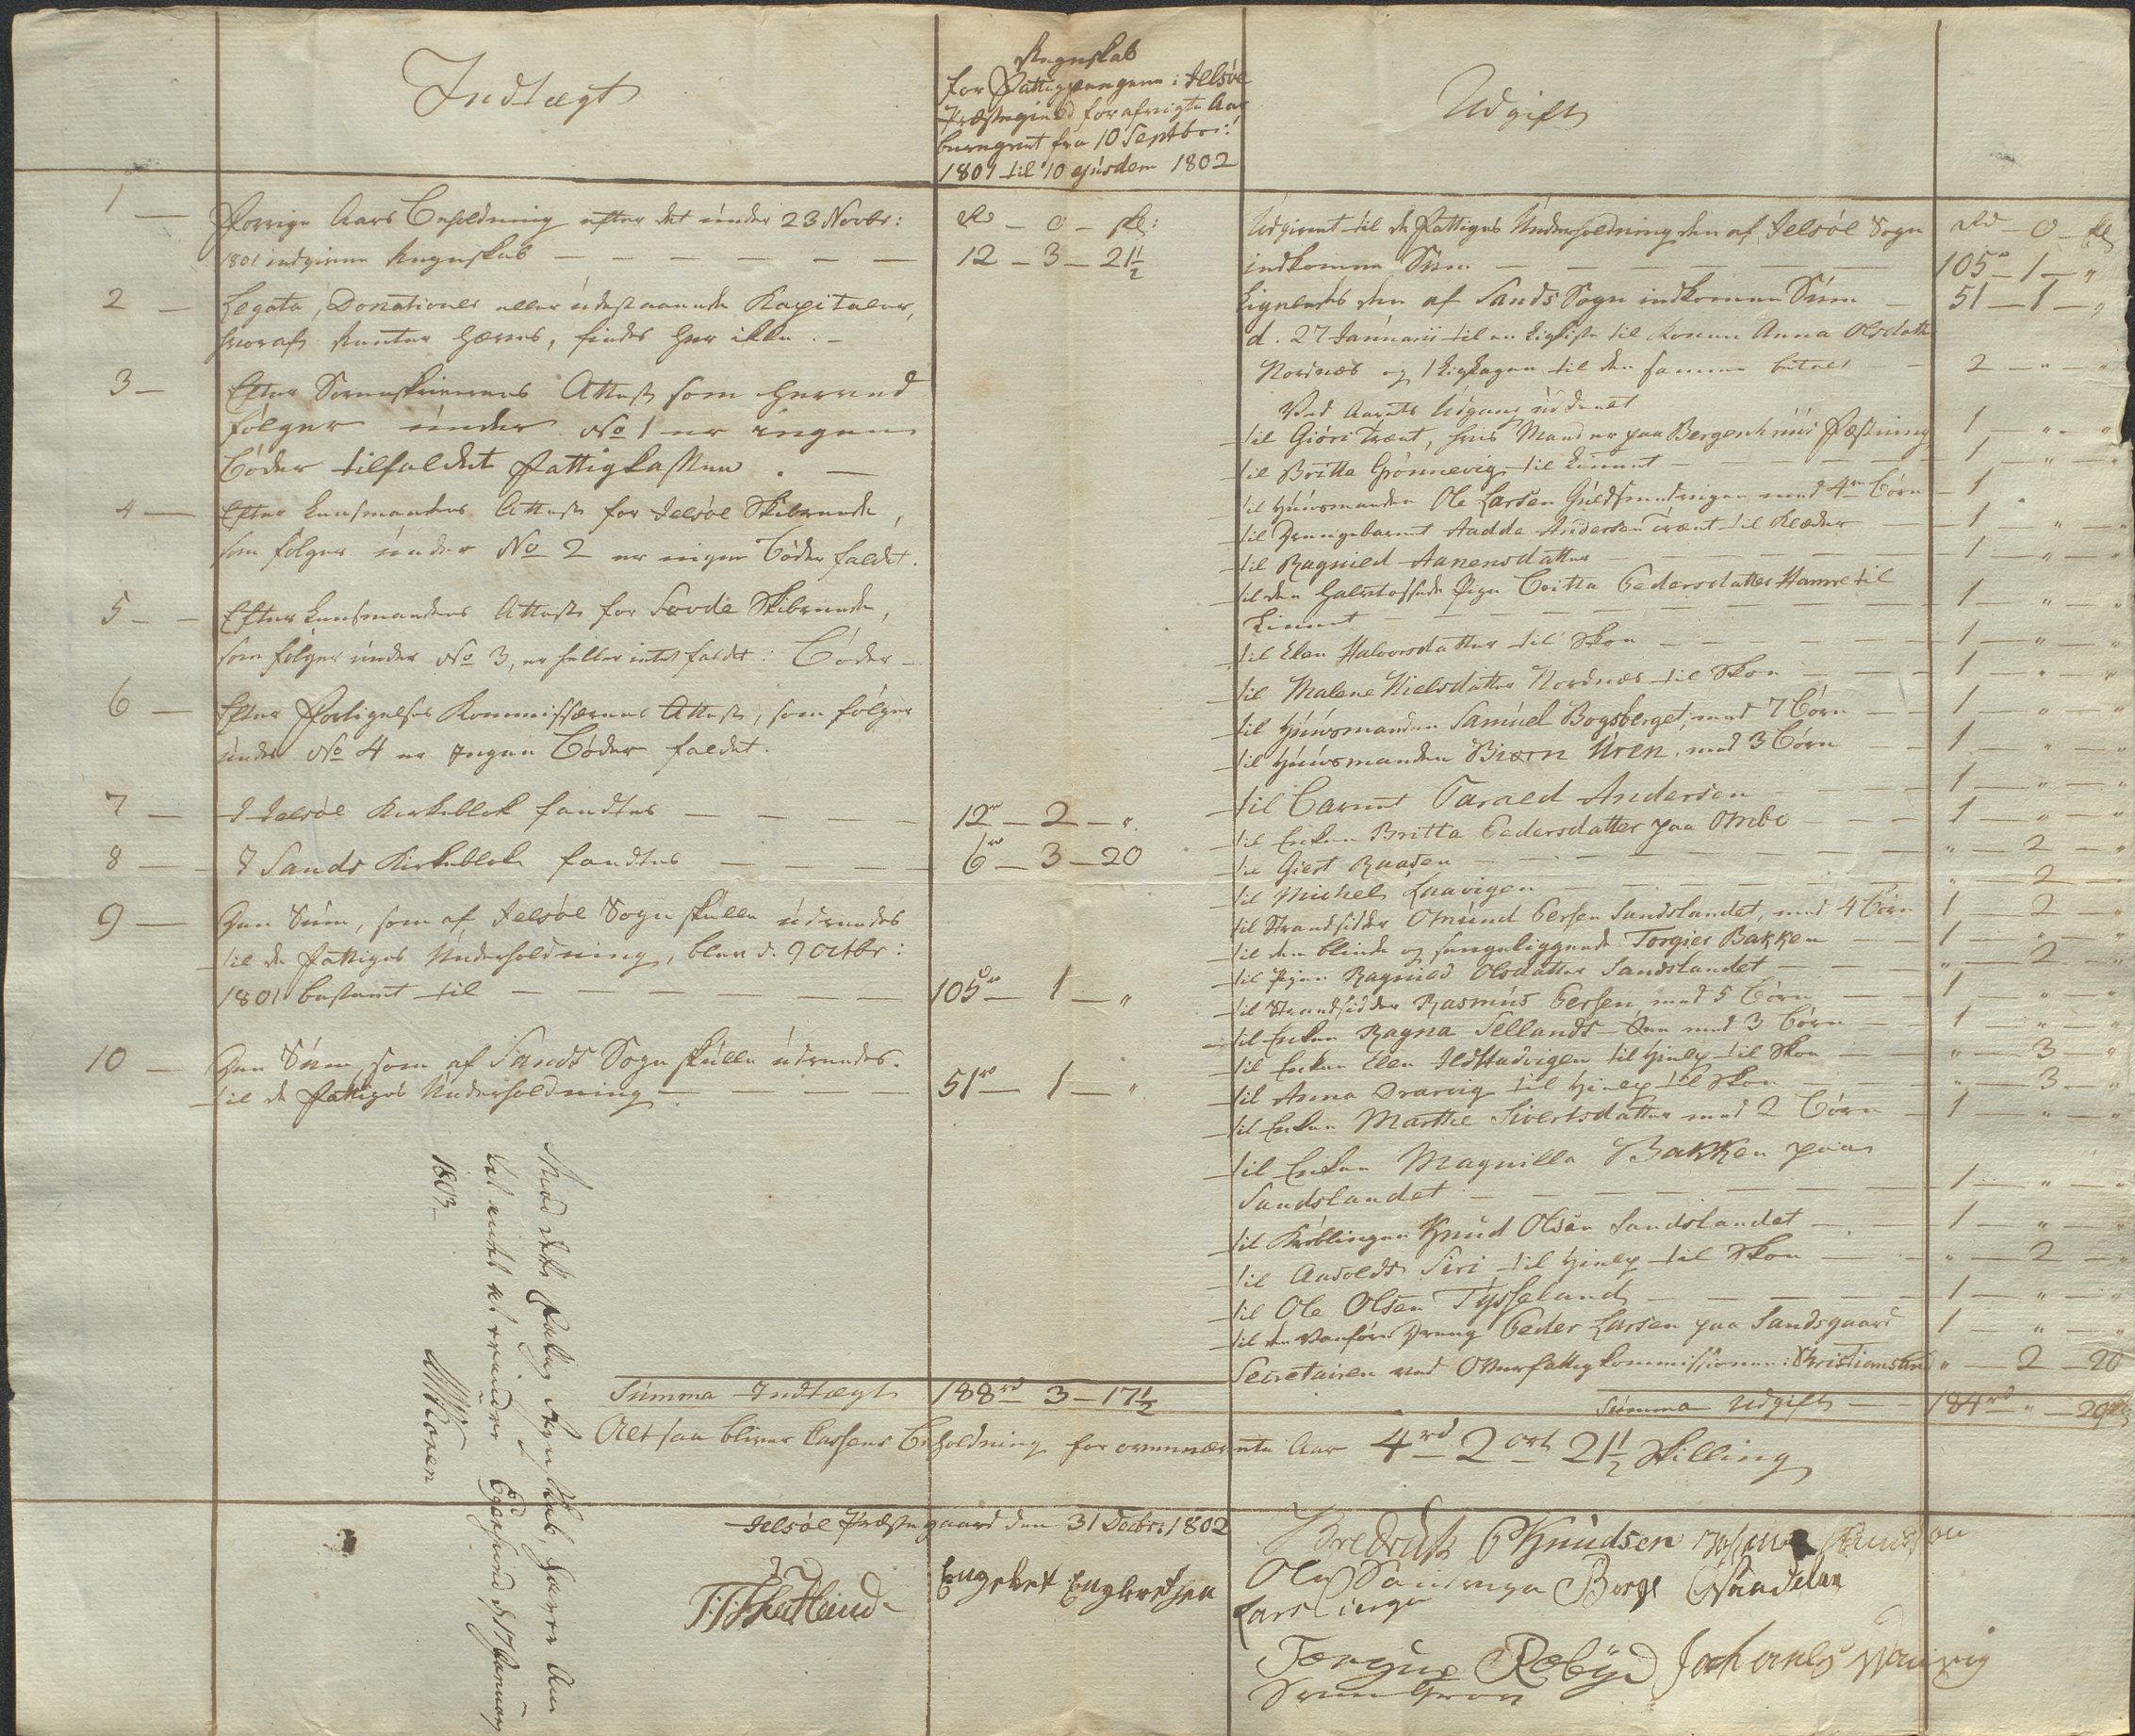 Indtægt
Regnskab
for Fattigpengene i Jelsöe
Præstegield for afvigte Aar
beregnet fra 10 Septbr:
1801 til 10 ejusdem 1802
Udgift
1 — Forrige Aars Beholdning efter det under 23 Novbr:
Rd — O — sk:
1801 indgivne Regnskab — — — — — — 12 — 3 — 21½
2 — Legata, Donationer eller udestaaende Kapitaler,
hvoraf Renter hæves, findes her ikke. —
3 — Efter Sorenskriverens Attest som herved
følger under No 1 er ingen
Bøder tilfaldet Fattigkassen. —
4 — Efter Lensmandens Attest for Jelsöe Skibrede,
som følger under No 2 er ingen Bøder faldet.
5 — Efter Lensmandens Attest for Sovde Skibrede,
som følger under No 3, er heller intet faldet i Bøder —
6 — Efter Forligelses Kommissærenes Attest, som følger
under No 4 er Ingen Bøder faldet.
7 — I Jelsöe Kirkeblok fandtes — — — — 12 rd — 2 — "
8 — I Sands Kirkeblok fandtes — — — — 6 rd — 3 — 20
9 — Den Sum, som af Jelsöe Sogn skulle udredes
til de Fattiges Underholdning, blev d. 9 Octbr:
1801 bestemt til — — — — — — 105 rd — 1 — "
10 — Den Sum, som af Sands Sogn skulle udredes
til de Fattiges Underholdning — — — — 51 rd — 1 — "
Summa Indtægt 188 rd 3 — 17½
Udgivet til de Fattiges Underholdning den af Jelsöe Sogn Rd — O — sk
indkomne Sum — — — — 105 — 1 — "
Ligeledes den af Sands Sogn indkomne Sum — 51 — 1 — "
d. 27 Januarii til en Ligkiste til Konen Anna Olsdatter
Nordnæs og 1 Liglagen til den samme betalt — 2 — " — "
Ved Aarets Udgang uddeelt
til Giöri Trænt, hvis Mand er paa Bergenhuus Fæstning 1 — " — "
til Britta Grönnevig til Linnet — — — 1 — " — "
til Huusmanden Ole Larsen Guldsmedvigen med 4re Börn — 1
til Drengebarnet Aadda Andersen Trænt til Klæder — 1 — " — "
til Ragnild Aanensdatter — — — — 1 — " — "
til den halvtossede Pige Britta Pedersdatter Hamre til
Linnet — — — — 1 — " — "
til Elen Halvorsdatter til Skoe — — — 1 — " — "
til Malene Nielsdatter Nordnæs til Skoe — — 1 — " — "
til Huusmanden Samuel Bogsberget, med 7 Börn — 1 — " — "
til Huusmanden Biørn Uren, med 3 Börn — 1 — " — "
til Barnet Tarald Andersen — — 1 — " — "
til Enken Britta Pedersdatter paa Ombo — — 1 — " — "
til Giert Raasen — — — — " — 2 — "
til Michel Laavigen — — — — " — 2 — "
til Strandsidder Omund Persen Sandslandet, med 4 Börn 1 — 2 — "
til den blinde og sengeliggende Torgier Bakken — 1 — " — "
til Pigen Ragnild Olsdatter Sandslandet — — " — 2 — "
til Strandsidder Rasmus Persen med 5 Börn — 1 — " — "
til Enken Ragna Sellands-Öen med 3 Börn — 1 — " — "
til Enken Elen Ildstadvigen til Hielp til Skoe — " — 3 — "
til Anna Drarvig til Hielp til Skoe — — " — 3 — "
til Enken Marthe Sivertsdatter med 2 Börn — 1 — " — "
til Enken Magnilla Bakken paa
Sandslandet — — — — 1 — " — "
til Krøblingen Knud Olsen Sandslandet — 1 — " — "
til Siri til Hielp til Skoe — — " — 2 — "
til Ole Olsen Tysseland — — — — 1 — " — "
til den vanføre Dreng Peder Larsen paa Sandsgaard 1 — " — "
Secretairen ved Overfattigkommissionen i Christiansand " — 2 — 20
Summa Udgift — — 184 rd " — 20 sk
Altsaa bliver Cassens Beholdning for ovennævnte Aar 4 rd 2 ort 21½ Skilling
Jelsöe Præstegaard den 31 Decbr: 1802
Engebret Engbretsen
Knudsen
Ole
Lars
Borge
Med dette Regnskab, haves Aar
at erindre Egersund d. 17 Januarij
1803 —